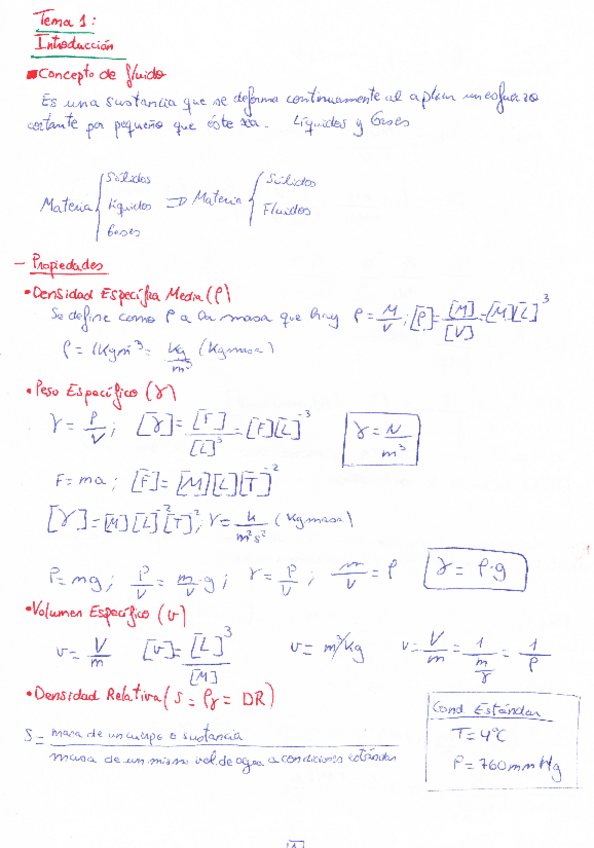 Tema 1:
Introducción
■Concepto de fluido
Es una sustancia que se deforma continuamente al aplicar un esfuerzo
cortante por pequeño que éste sea. Líquidos y Gases
Materia { Sólidos Líquidos Gases ⇒ Materia { Sólidos Fluidos
- Propiedades
•Densidad Específica Media (ρ)
Se define como ρ a la masa que hay ρ = M/V ; [ρ] = [M]/[V] = [M][L]^3
ρ = 1Kgm^-3 = Kg/m^3 (Kgmasa)
•Peso Específico (γ)
γ = P/V ; [γ] = [F]/[L]^3 = [F][L]^-3 γ = N/m^3
F = ma ; [F] = [M][L][T]^-2
[γ] = [M][L]^-2[T]^-2 ; γ = k/m^2s^2 (Kgmasa)
P = mg ; P/V = m/V · g ; γ = P/V ; m/V = ρ γ = ρ·g
•Volumen Específico (v)
v = V/m [v] = [L]^3/[M] v = m^3/Kg v = V/m = 1/(m/γ) = 1/ρ
•Densidad Relativa (S = ργ = DR)
S = masa de un cuerpo o sustancia
masa de un mismo vol. de agua a condiciones estándar
Cond Estándar
T = 4ºC
P = 760 mm Hg
1